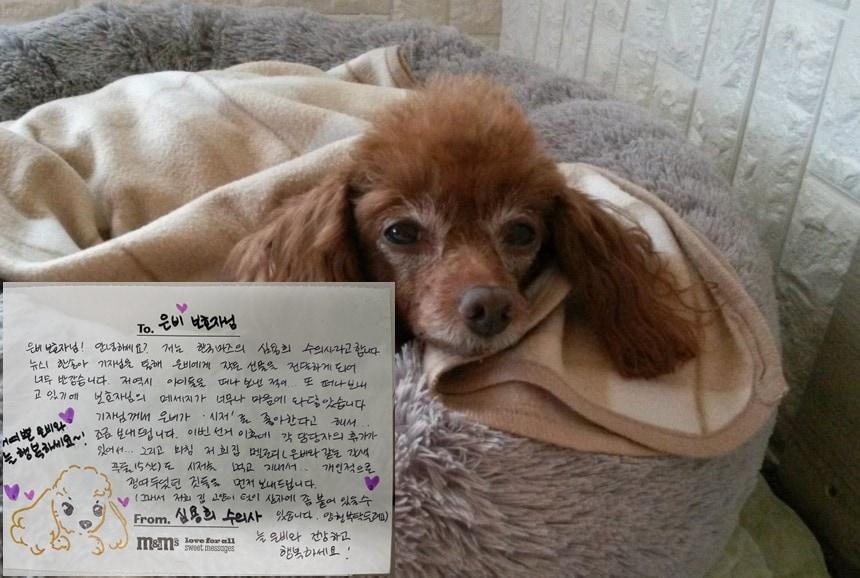 To. 은비 보호자님
은비 보호자님! 안녕하세요? 저는 한국마즈의 심용희 수의사라고 합니다
뉴스1 한송아 기자님을 통해 은비에게 작은 선물을 전달하게 되어
너무 반갑습니다. 저 역시 아이들을 떠나 보낸 적이.. 또 떠나 보내
고 있기에 보호자님의 메세지가 너무나 마음에 와 닿았습니다
기자님께서 은비가 '시저'를 좋아한다고 해서..
조금 보내드립니다. 이번 선거 이후에 각 담당자의 휴가가
있어서... 그리고 마침 저희 집 (은비와 같은 갈색
푸들, 15살)도 시저를 먹고 지내서.. 개인적으로
쟁여두었던 것들을 먼저 보내드립니다.
(그래서 저희 집 고양이 털이 상자에 좀 붙어 있을 수
있습니다. 양해 부탁드려요)
예쁜 은비와
늘 행복하세요~!
From. 심용희 수의사
늘 은비와 건강하고
행복하세요!
m&m's love for all
sweet messages